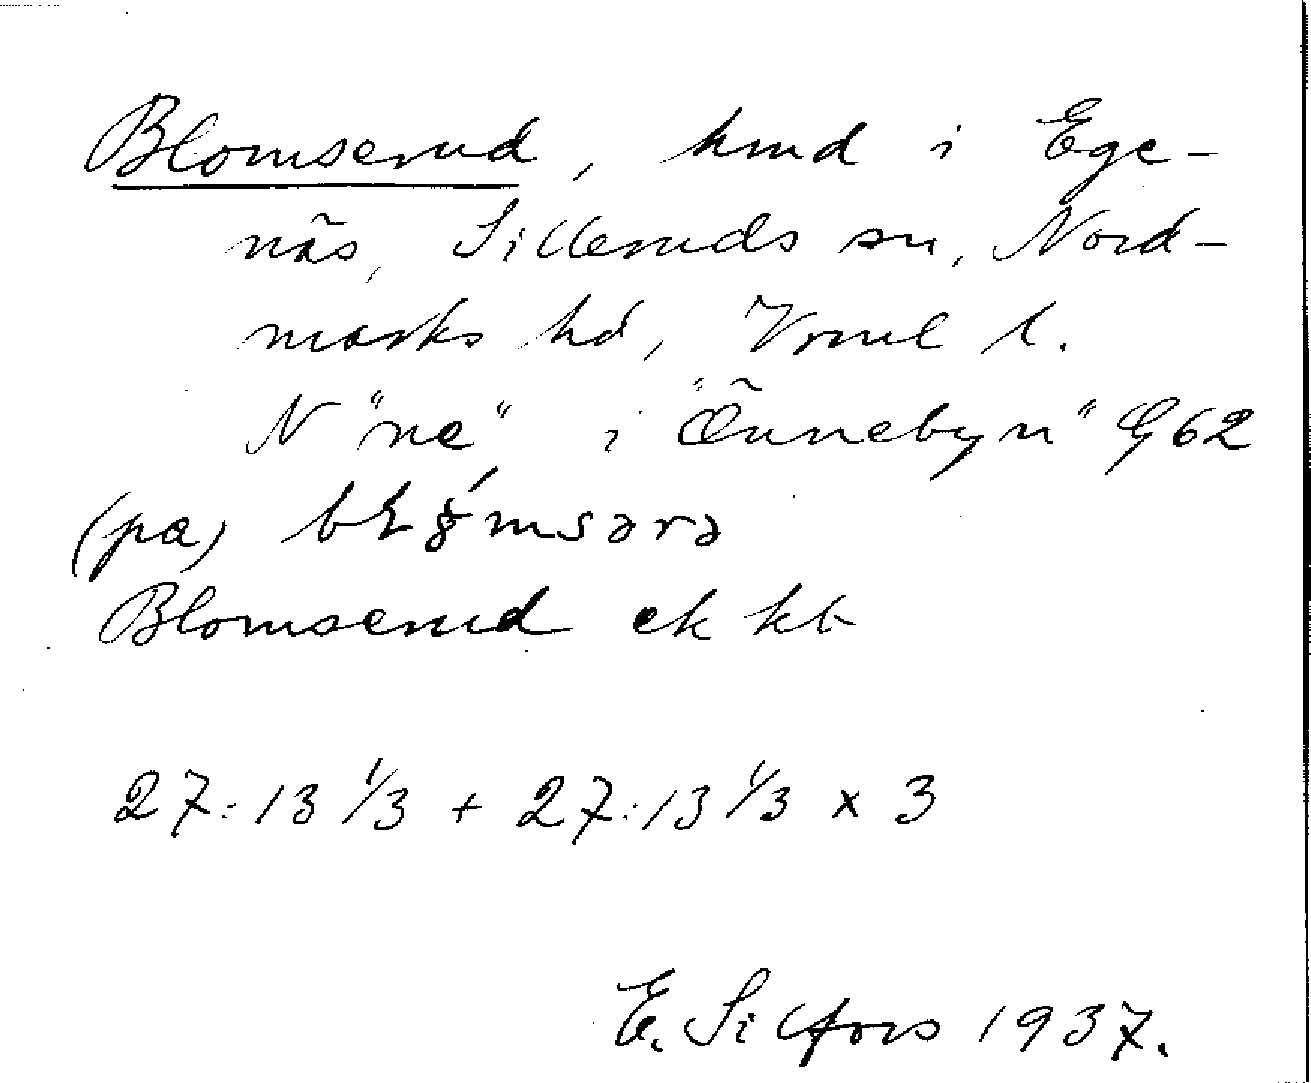 Blomserud, hmd i Ege-
näs, Silleruds sn, Nord-
marks hd, Vrml l.
N "ne" i "Önnebyn" G62
(pa) bɫɞ́msərə
Blomserud ek kt
27:13 1/3 + 27:13 1/3 x 3
E. Silfors 1937.